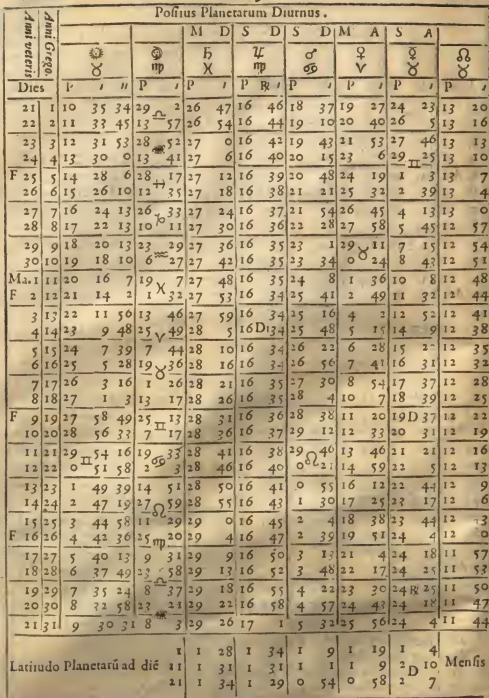 Positus Planetarum Diurnus.
Anni veteris Anni Grego.
M D S D S D M A S A
☉ ☽ ♄ ♃ ♂ ♀ ☿ ☊
♉ ♍ ♓ ♍ ♋ ♈ ♉ ♉
Dies P ' '' P ' P ' P ℞ ' P ' P ' P ' P '
21 1 10 35 34 29 ♎ 2 26 47 16 46 18 37 19 27 24 23 13 20
22 2 11 33 45 13 57 26 54 16 44 19 10 20 40 26 5 13 16
23 3 12 31 53 28 52 27 0 16 42 19 43 21 53 27 46 13 13
24 4 13 30 0 13 41 27 6 16 40 20 15 23 6 29 ♊ 25 13 10
F 25 5 14 28 6 28 17 27 12 16 39 20 48 24 19 1 3 13 7
26 6 15 26 10 12 35 27 18 16 38 21 21 25 32 2 39 13 4
27 7 16 24 13 26 ♑ 33 27 24 16 37 21 54 26 45 4 13 13 0
28 8 17 22 13 10 11 27 30 16 36 22 28 27 58 5 45 12 57
29 9 18 20 13 23 29 27 36 16 35 23 1 29 ♉ 11 7 15 12 54
30 10 19 18 10 6 ♒ 27 27 42 16 35 23 34 0 24 8 43 12 51
Ma. 1 11 20 16 7 19 ♓ 7 27 48 16 35 24 8 1 36 10 8 12 48
F 2 12 21 14 2 1 32 27 53 16 34 25 41 2 49 11 32 12 44
3 13 22 11 56 13 46 27 59 16 34 25 16 4 2 12 52 12 41
4 14 23 9 48 25 ♈ 49 28 5 16 D 34 25 48 5 15 14 9 12 38
5 15 24 7 39 7 44 28 10 16 34 26 22 6 28 15 12 35
6 16 25 5 28 19 ♉ 36 28 16 16 34 26 56 7 41 16 31 12 32
7 17 26 3 16 1 26 28 21 16 35 27 30 8 54 17 37 12 28
8 18 27 1 3 13 17 28 26 16 35 28 4 10 7 18 39 12 25
F 9 19 27 58 49 25 ♊ 13 28 31 16 36 28 38 11 20 19 D 37 12 22
10 20 28 56 33 7 17 28 36 16 37 29 12 12 33 20 31 12 19
11 21 29 ♊ 54 16 19 ♋ 33 28 41 16 38 29 ♌ 46 13 46 21 21 12 16
12 22 0 51 58 2 3 28 46 16 40 0 21 14 59 22 5 12 13
13 23 1 49 39 14 51 28 50 16 41 0 55 16 12 22 44 12 9
14 24 2 47 19 27 ♌ 59 28 55 16 43 1 30 17 25 23 17 12 6
15 25 3 44 58 11 29 29 0 16 45 2 4 18 38 23 44 12 3
F 16 26 4 42 36 25 ♍ 20 29 4 16 47 2 39 19 51 24 4 12 0
17 27 5 40 13 9 31 29 9 16 50 3 13 21 4 24 18 11 57
18 28 6 37 49 23 ♎ 58 29 13 16 52 3 48 22 17 24 25 11 53
19 29 7 35 24 8 37 29 18 16 55 4 22 23 30 24 ℞ 25 11 50
20 30 8 32 58 23 21 29 22 16 58 4 57 24 43 24 18 11 47
21 31 9 30 31 8 3 29 26 17 1 5 32 25 56 24 4 11 44
Latitudo Planetarū ad diē 1 1 28 1 34 1 9 1 19 1 4 Mensis
11 1 31 1 31 1 1 1 9 2 D 10
21 1 34 1 29 0 54 0 58 2 7